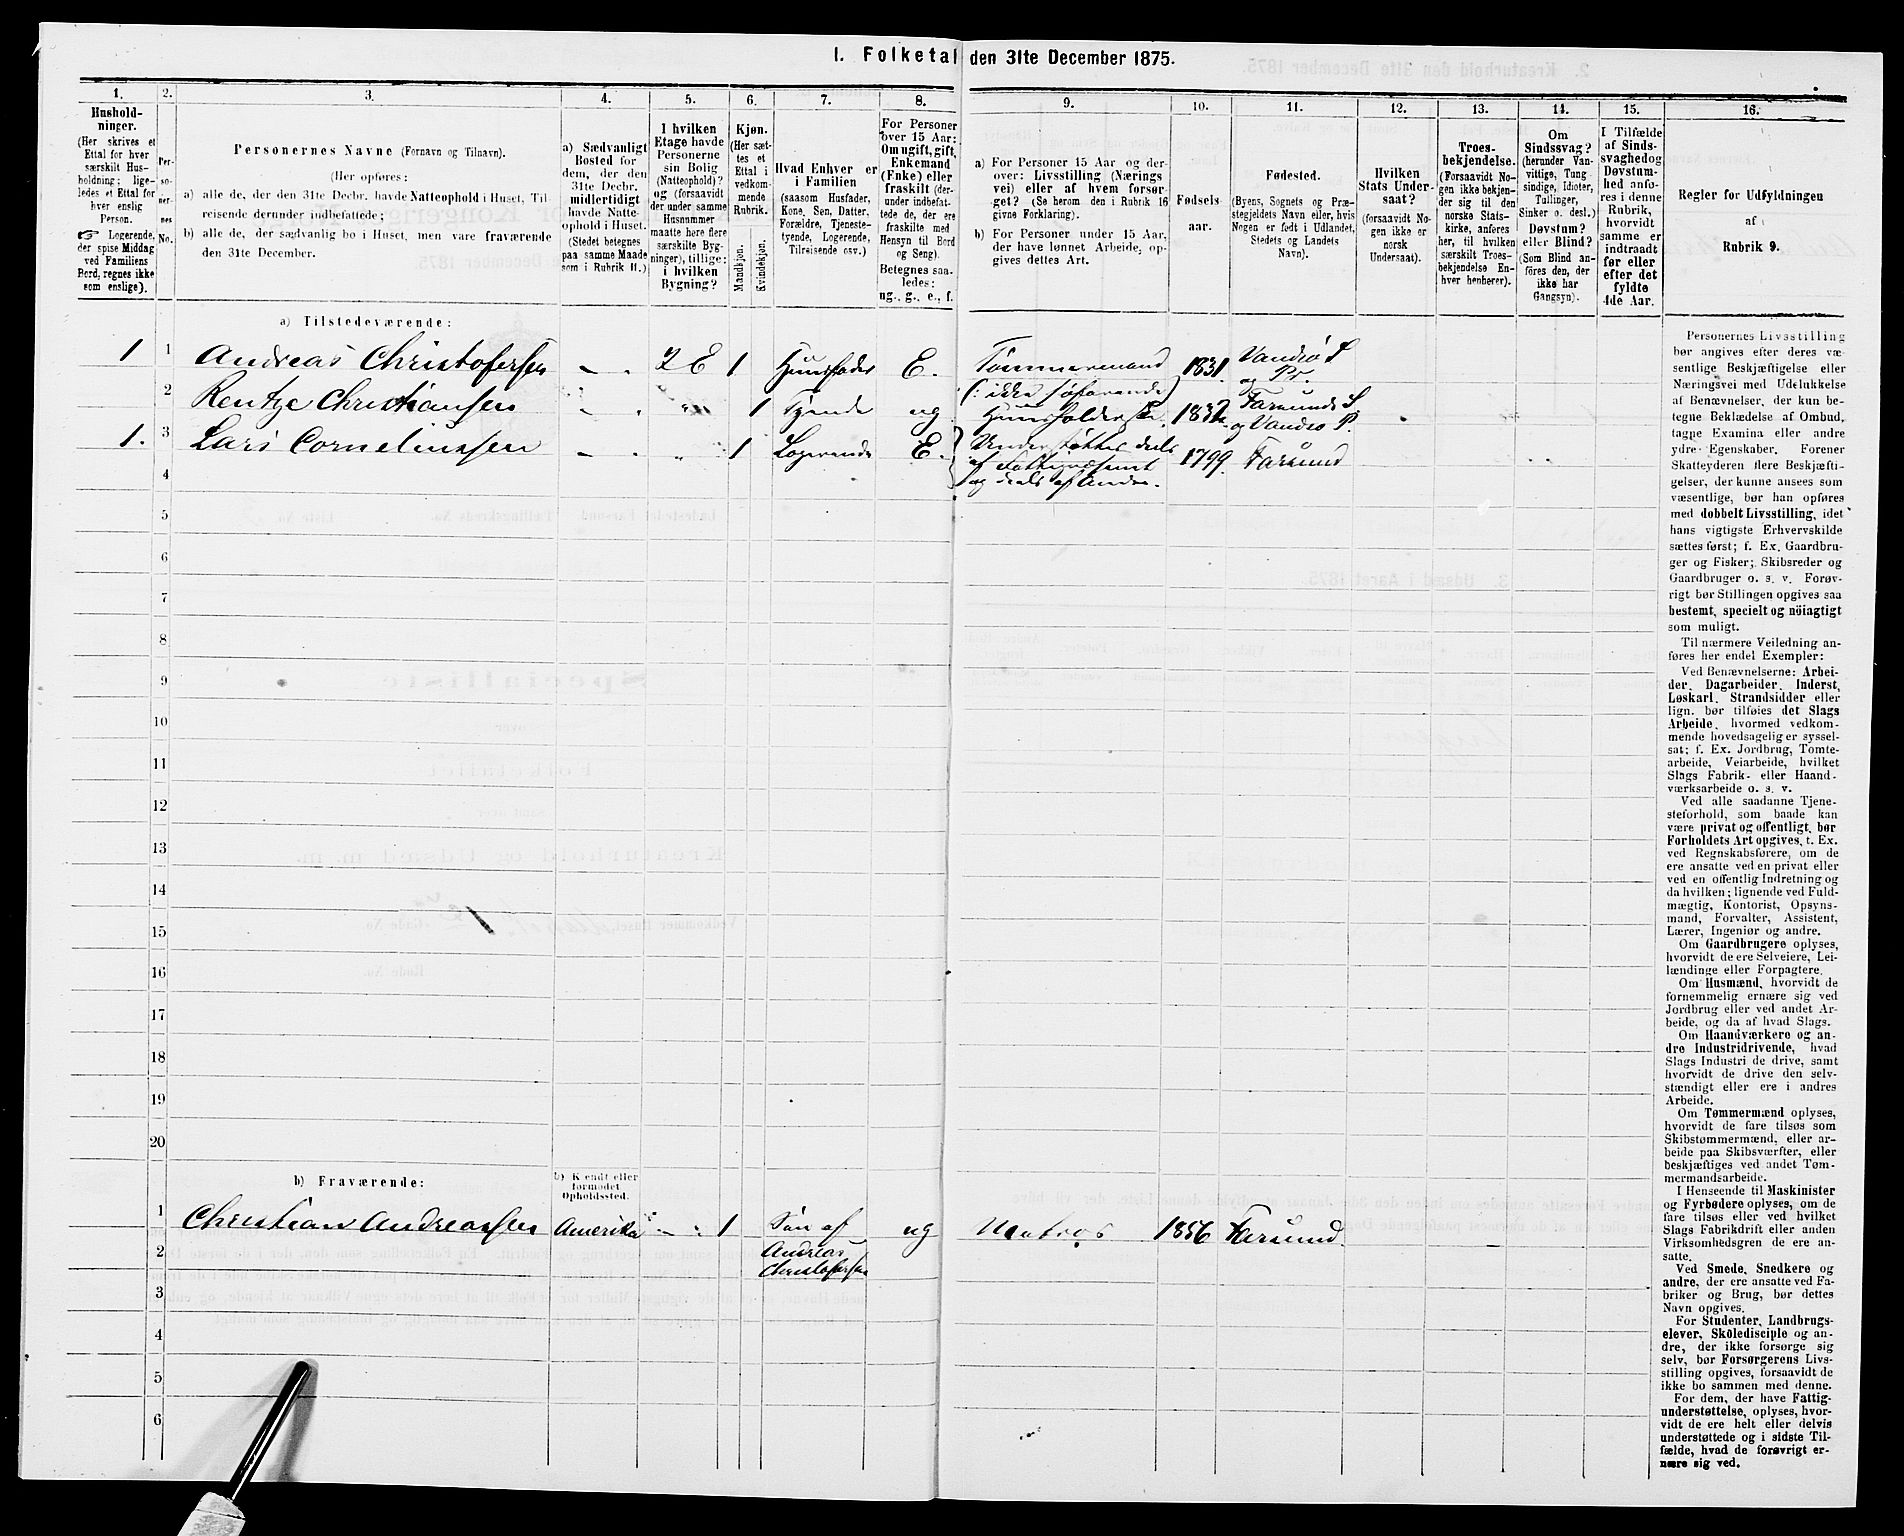 1. Folketal den 31te December 1875.
1.
Hushold-
ninger.
(Her skrives et
Ettal for hver
særskilt Hus-
holdning; lige-
ledes et Ettal for
hver enslig
Person.
☞ Logerende,
der spise Middag
ved Familiens
Bord, regnes ikke
som enslige).
2.
Per-
so-
ner-
nes
No.
3.
Personernes Navne (Fornavn og Tilnavn).
(Her opføres:
a) alle de, der den 31te Decbr. havde Natteophold i Huset, Til-
reisende derunder indbefattede;
b) alle de, der sædvanlig bo i Huset, men vare fraværende
den 31te December.
4.
a) Sædvanligt
Bosted for
dem, der den
31te Decbr.
midlertidigt
havde Natte-
ophold i Huset.
(Stedet betegnes
paa samme Maade
som i Rubrik 11.)
5.
I hvilken
Etage havde
Personerne
sin Bolig
(Natteophold)?
og (forsaavidt
der under samme
Husnummer
maatte høre flere
særskilte Byg-
ninger), tillige:
i hvilken
Bygning?
6.
Kjøn.
(Her sæt-
tes et
Ettal i
vedkom-
mende
Rubrik.
Mandkjøn.
Kvindekjøn.
7.
Hvad Enhver er
i Familien
(saasom Husfader,
Kone, Søn, Datter,
Forældre, Tjeneste-
tyende, Logerende,
Tilreisende osv.)
8.
For Personer
over 15 Aar:
Om ugift, gift,
Enkemand
(Enke) eller
fraskilt (der-
under indbefat-
tede de, der ere
fraskilte med
Hensyn til Bord
og Seng).
Betegnes saa-
ledes:
ug., g., e., f.
9.
a) For Personer 15 Aar og der-
over: Livsstilling (Nærings
vei) eller af hvem forsør-
get? (Se herom den i Rubrik 16
givne Forklaring).
b) For Personer under 15 Aar,
der have lønnet Arbeide, op-
gives dettes Art.
10.
Fødsels-
aar.
11.
Fødested.
(Byens, Sognets og Præ-
stegjeldets Navn eller, hvis
Nogen er født i Udlandet,
Stedets og Landets
Navn).
12.
Hvilken
Stats Under-
saat?
(forsaavidt No-
gen ikke er
norsk
Undersaat).
13.
Troes-
bekjendelse.
(Forsaavidt No-
gen ikke bekjen-
der sig til den
norske Stats-
kirke, anføres
her, til hvilken
særskilt Troes-
bekjendelse En-
hver henhører).
14.
Om
Sindssvag?
(herunder Van-
vittige, Tung-
sindige, Idioter,
Tullinger,
Sinker o. desl.)
Døvstum?
eller Blind?
(Som Blind an-
føres den, der
ikke har
Gangsyn).
15.
I Tilfælde
af Sinds-
svaghed og
Døvstum-
hed anfø-
res i denne
Rubrik,
hvorvidt
samme er
indtraadt
før eller
efter det
fyldte
4de Aar.
16.
Regler for Udfyldningen
af
Rubrik 9.
a) Tilstedeværende:
1 1 Andreas Christofersen - " 2 E 1 Huusfader E. Tømmermand 1831. Vandsø S
(: ikke søfarende) og Pr.
2 Rentze Christiansen - " " 1 Tyende ug Huusholderske. 1832. Farsunds S.
og Vandsø P.
1. 3 Lars Corneliussen - " 1 Logerende E. Understøttes deels 1799. Farsund
af Fattigvæsenet
og deels af Andre.
4
5
6
7
8
9
10
11
12
13
14
15
16
17
18
19
20
b) Fraværende:
b) Kjendt eller
formodet
Opholdssted.
1 Christian Andreassen Amerika - " 1 Søn af ug Matros 1856 Farsund.
2 Andreas
Christofersen
3
4
5
6
Personernes Livsstilling
bør angives efter deres væ-
sentlige Beskjæftigelse eller
Næringsvei med Udelukkelse
af Benævnelser, der kun be-
tegne Beklædelse af Ombud,
tagne Examina eller andre
ydre Egenskaber. Forener
Skatteyderen flere Beskjæfti-
gelser, der kunne ansees som
væsentlige, bør han opføres
med dobbelt Livsstilling, idet
hans vigtigste Erhvervskilde
sættes først; f. Ex. Gaardbru-
ger og Fisker; Skibsreder og
Gaardbruger o. s. v. Forøv-
rigt bør Stillingen opgives saa
bestemt, specielt og nöiagtigt
som muligt.
Til nærmere Veiledning an-
føres her endel Exempler:
Ved Benævnelserne: Arbei-
der, Dagarbeider, Inderst,
Løskarl, Strandsidder eller
lign. bør tilføies det Slags
Arbeide, hvormed vedkom-
mende hovedsagelig er syssel-
sat; f. Ex. Jordbrug, Tomte-
arbeide, Veiarbeide, hvilket
Slags Fabrik- eller Haand-
værksarbeide o. s. v.
Ved alle saadanne Tjene-
steforhold, som baade kan
være privat og offentligt, bør
Forholdets Art opgives, t. Ex.
ved Regnskabsførere, om de
ere ansatte ved en privat eller
ved en offentlig Indretning og
da hvilken; lignende ved Fuld-
mægtig, Kontorist, Opsyns-
mand, Forvalter, Assistent,
Lærer, Ingeniør og andre.
Om Gaardbrugere oplyses,
hvorvidt de ere Selveiere, Lei-
lændinge eller Forpagtere.
Om Husmænd, hvorvidt de
fornemmelig ernære sig ved
Jordbrug eller ved andet Ar-
beide, og da af hvad Slags.
Om Haandværkere og an-
dre Industridrivende, hvad
Slags Industri de drive, samt
hvorvidt de drive den selv-
stændigt eller ere i andres
Arbeide.
Om Tømmermænd oplyses,
hvorvidt de fare tilsøs som
Skibstømmermænd, eller ar-
beide paa Skibsværfter, eller
beskjæftiges ved andet Tøm-
mermandsarbeide.
I Henseende til Maskinister
og Fyrbødere oplyses, om de
fare tilsøs eller ved hvilket
Slags Fabrikdrift eller anden
Virksomhedsgren de ere an-
satte.
Ved Smede, Snedkere og
andre, der ere ansatte ved Fa-
briker og Brug, bør dettes
Navn opgives.
For Studenter, Landbrugs-
elever, Skoledisciple og an-
dre, der ikke forsørge sig
selv, bør Forsørgerens Livs-
stilling opgives, forsaavidt de
ikke bo sammen med denne.
For dem, der have Fattig-
understøttelse, oplyses, hvor-
vidt de ere helt eller delvis
understøttede og i sidste Til-
fælde, hvad de forøvrigt er-
nære sig ved.